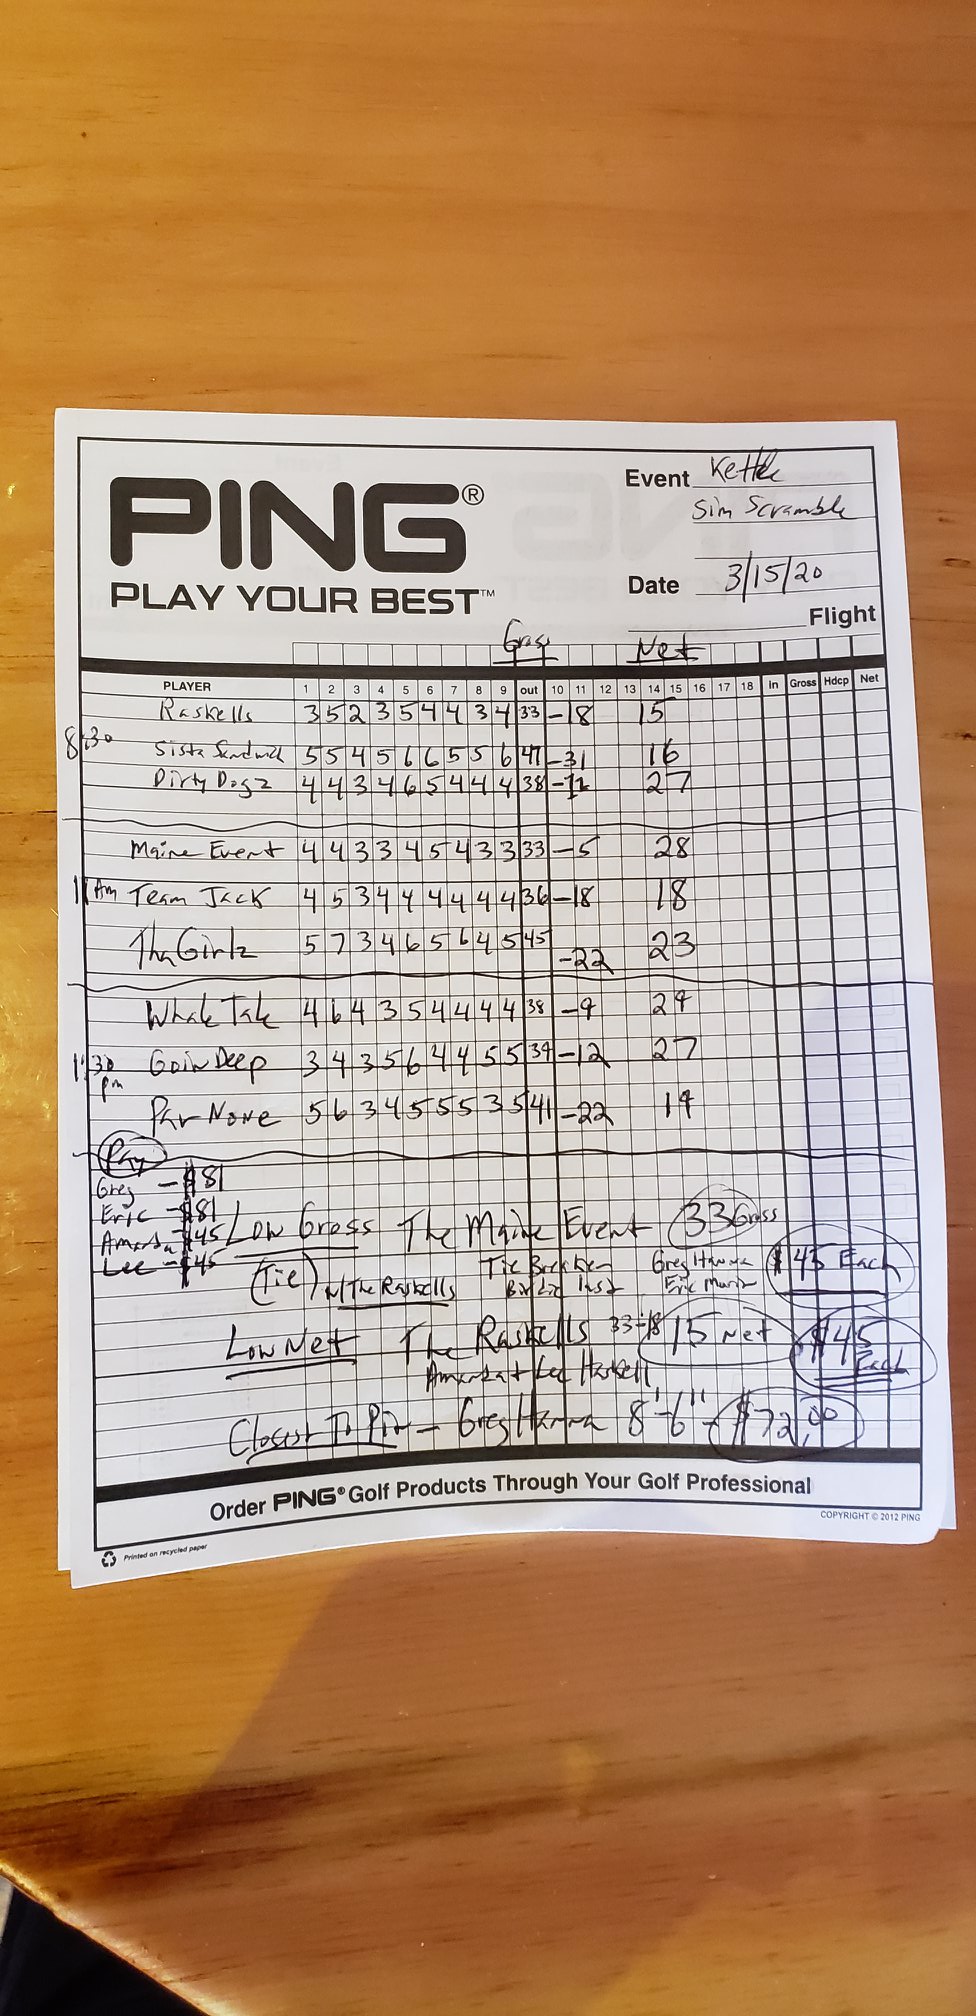 Event Kettle
Sim Scramble
PING®
PLAY YOUR BEST™
Date 3/15/20
Flight
Gross Net
PLAYER 1 2 3 4 5 6 7 8 9 out 10 11 12 13 14 15 16 17 18 In Gross Hdcp Net
Raskells 3 5 2 3 5 4 4 3 4 33 -18 15
8:30
Sista Sandwich 5 5 4 5 6 6 5 5 6 47 -31 16
Dirty Dogz 4 4 3 4 6 5 4 4 4 38 -11 27
Maine Event 4 4 3 3 4 5 4 3 3 33 -5 28
11 Am Team Jack 4 5 3 4 4 4 4 4 4 36 -18 18
Tha Girlz 5 7 3 4 6 5 6 4 5 45 -22 23
Whale Tale 4 6 4 3 5 4 4 4 4 38 -9 29
1:30 pm Goin Deep 3 4 3 5 6 4 4 5 5 39 -12 27
Par None 5 6 3 4 5 5 5 3 5 41 -22 19
Pay
Greg - $81
Eric - $81
Amanda - $45
Lee - $45
Low Gross The Maine Event 33 Gross
(Tie) w/The Raskells Tie Breaker Birdie last Greg Hanna Eric $45 Each
Low Net The Raskells 33-18 15 Net $45 Each
Amanda + Lee Haskell
Closest To Pin - Greg Hanna 8'-6" - $72.00
Order PING® Golf Products Through Your Golf Professional
COPYRIGHT © 2012 PING
Printed on recycled paper